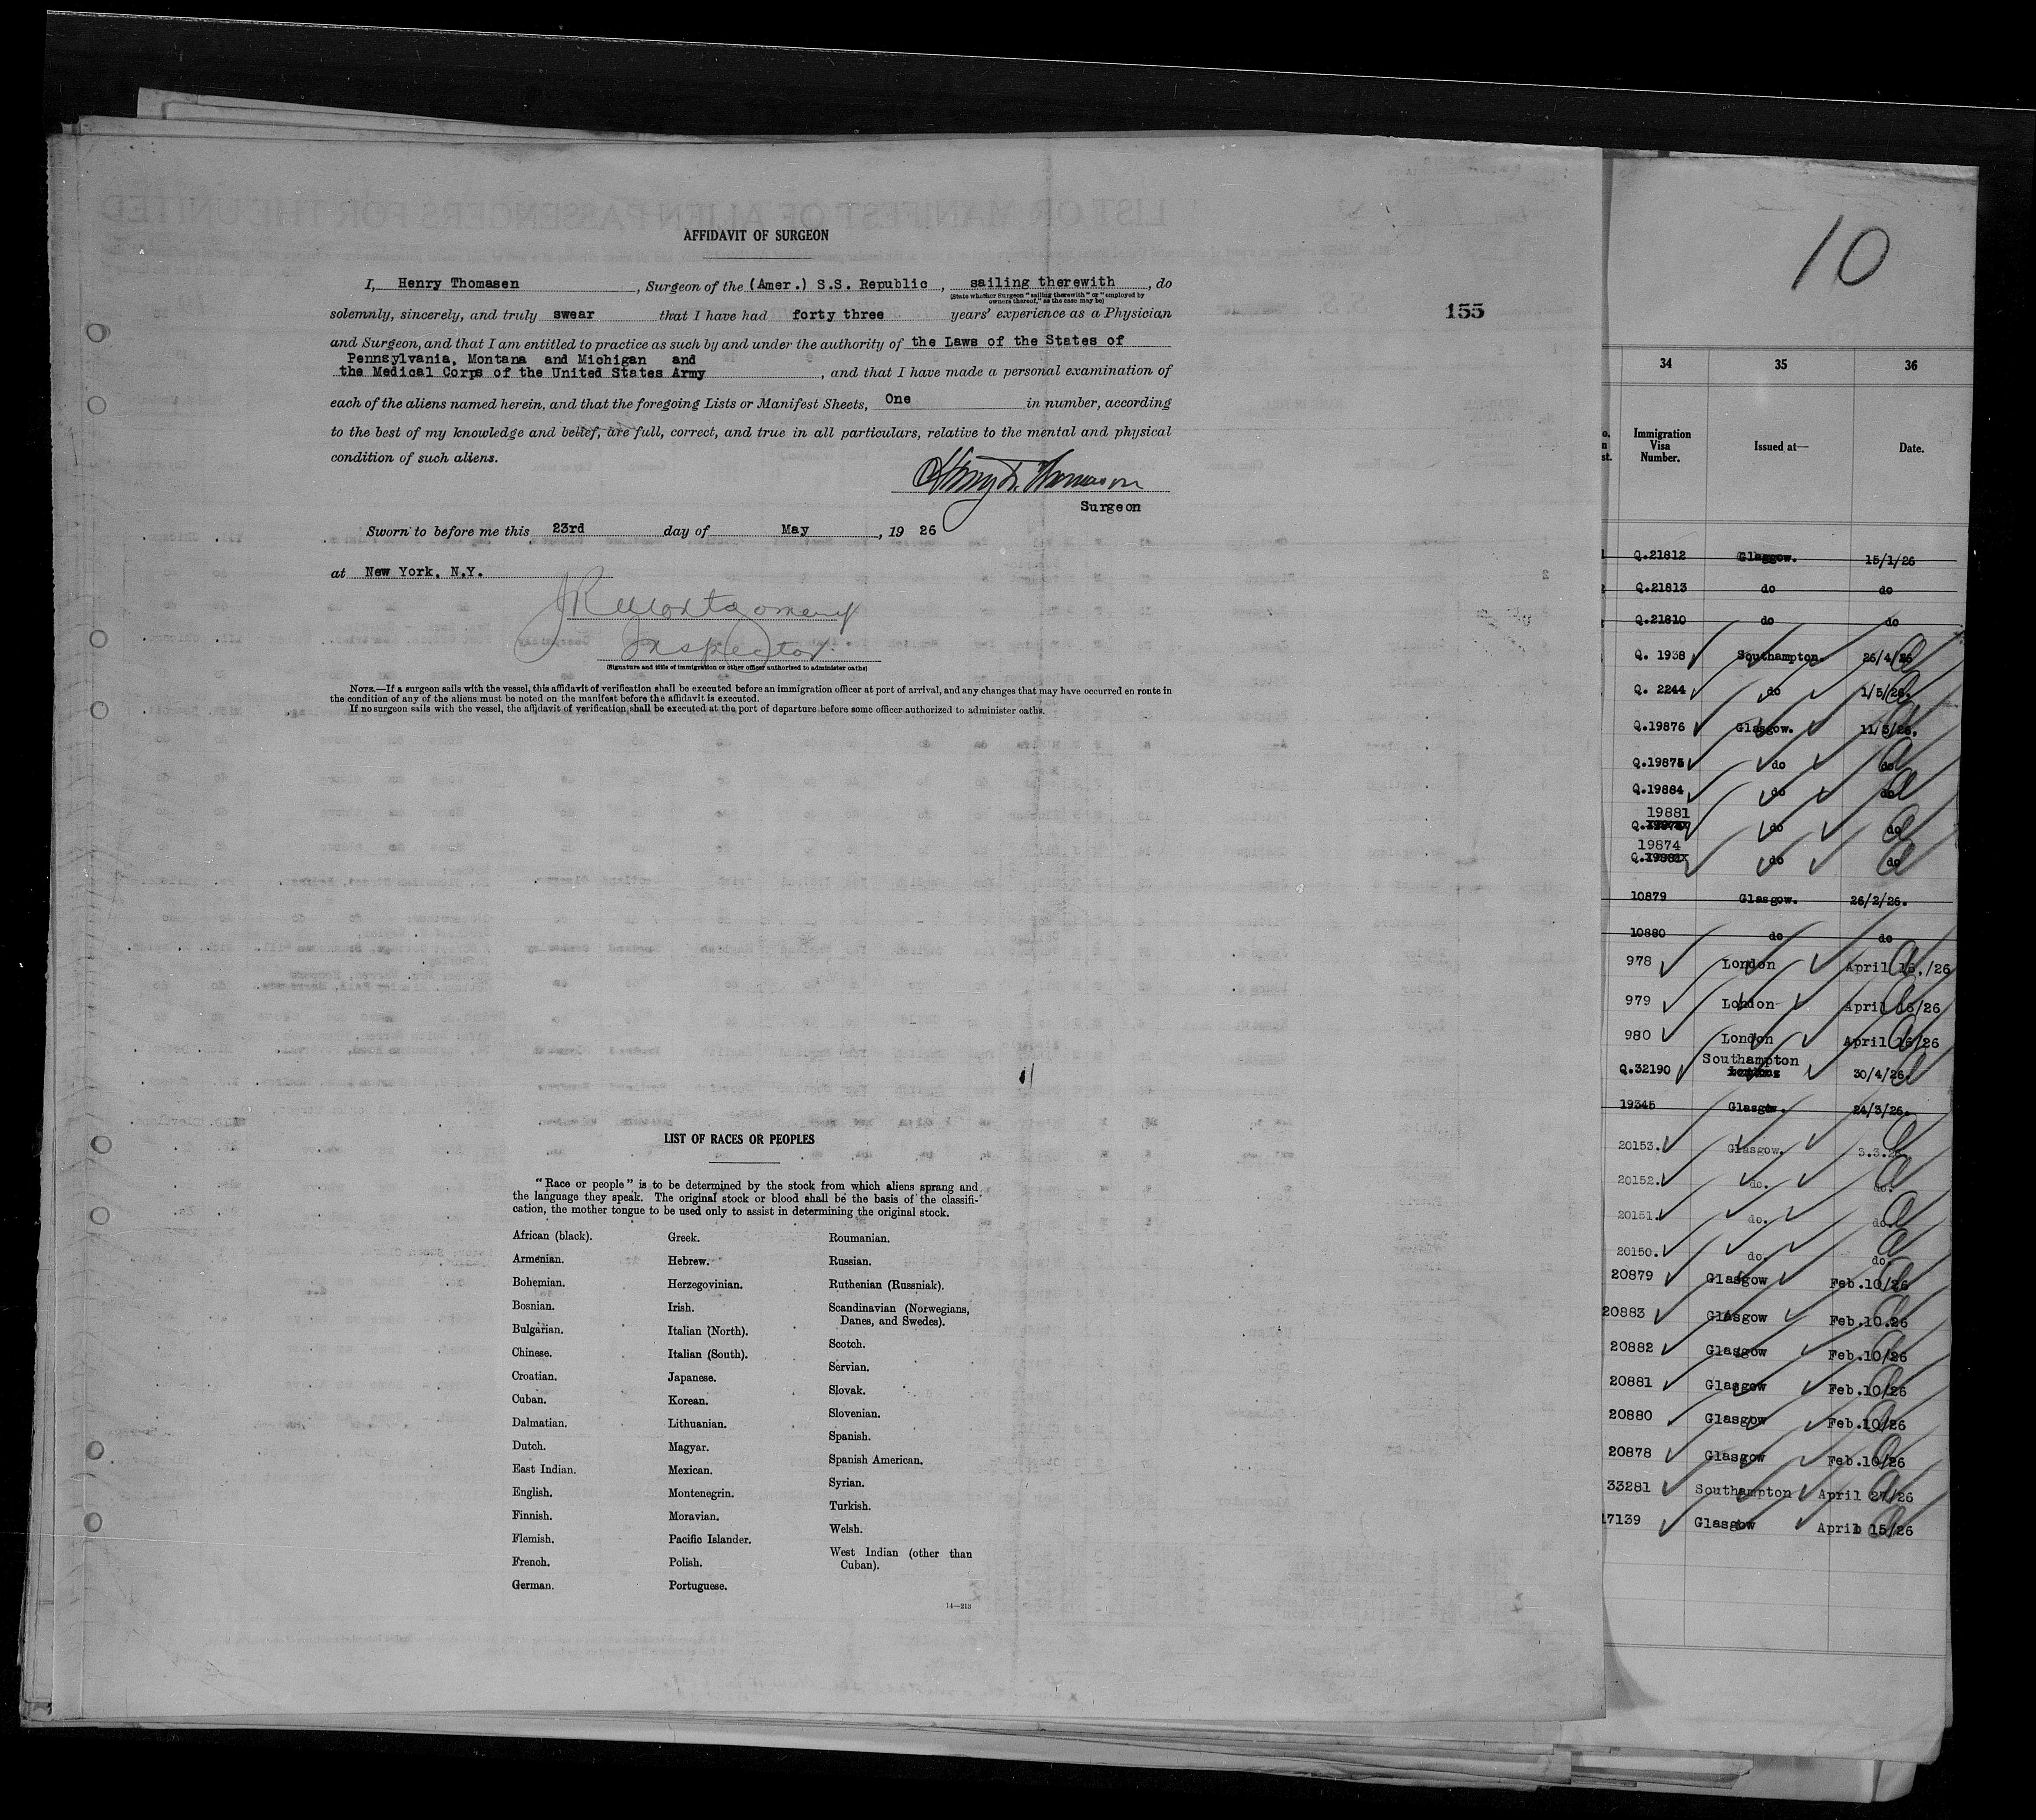 AFFIDAVIT OF SURGEON
I, Henry Thomasen, Surgeon of the (Amer.) S.S. Republic, sailing therewith, do
(State whether Surgeon "sailing therewith" or "employed by
owners thereof," as the case may be)
solemnly, sincerely, and truly swear that I have had forty three years' experience as a Physician
and Surgeon, and that I am entitled to practice as such by and under the authority of the Laws of the States of
Pennsylvania, Montana and Michigan and
the Medical Corps of the United States Army, and that I have made a personal examination of
each of the aliens named herein, and that the foregoing Lists or Manifest Sheets, One in number, according
to the best of my knowledge and belief, are full, correct, and true in all particulars, relative to the mental and physical
condition of such aliens.
Surgeon
Sworn to before me this 23rd day of May, 19 26
at New York, N.Y.
JR Montgomery
Inspector
(Signature and title of immigration or other officer authorized to administer oaths)
NOTE.—If a surgeon sails with the vessel, this affidavit of verification shall be executed before an immigration officer at port of arrival, and any changes that may have occurred en route in
the condition of any of the aliens must be noted on the manifest before the affidavit is executed.
If no surgeon sails with the vessel, the affidavit of verification shall be executed at the port of departure before some officer authorized to administer oaths.
155
LIST OF RACES OR PEOPLES
"Race or people" is to be determined by the stock from which aliens sprang and
the language they speak. The original stock or blood shall be the basis of the classifi-
cation, the mother tongue to be used only to assist in determining the original stock.
African (black).
Armenian.
Bohemian.
Bosnian.
Bulgarian.
Chinese.
Croatian.
Cuban.
Dalmatian.
Dutch.
East Indian.
English.
Finnish.
Flemish.
French.
German.
Greek.
Hebrew.
Herzegovinian.
Irish.
Italian (North).
Italian (South).
Japanese.
Korean.
Lithuanian.
Magyar.
Mexican.
Montenegrin.
Moravian.
Pacific Islander.
Polish.
Portuguese.
Roumanian.
Russian.
Ruthenian (Russniak).
Scandinavian (Norwegians,
Danes, and Swedes).
Scotch.
Servian.
Slovak.
Slovenian.
Spanish.
Spanish American.
Syrian.
Turkish.
Welsh.
West Indian (other than
Cuban).
14—213
10
34 35 36
Immigration
Visa
Number.
Issued at—
Date.
Q.21812 Glasgow. 15/1/26
Q.21813 do do
Q.21810 do do
Q. 1938 Southampton. 26/4/26
Q. 2244 do 1/5/26.
Q.19876 Glasgow. 11/3/26.
Q.19875 do do
Q.19884 do do
19881
Q. do do
19874
Q. do do
10879 Glasgow. 26/2/26.
10880 do do
978 London April 15./26
979 London April 15/26
980 London April 15/26
Southampton
Q.32190 30/4/26.
19345 Glasgow. 24/3/26.
20153. Glasgow. 3.3.26
20152. do. do.
20151. do. do.
20150. do. do.
20879 Glasgow Feb.10/26
20883 Glasgow Feb.10.26
20882 Glasgow Feb.10/26
20881 Glasgow Feb.10/26
20880 Glasgow Feb.10/26
20878 Glasgow Feb.10/26
33281 Southampton April 27/26
17139 Glasgow April 15/26